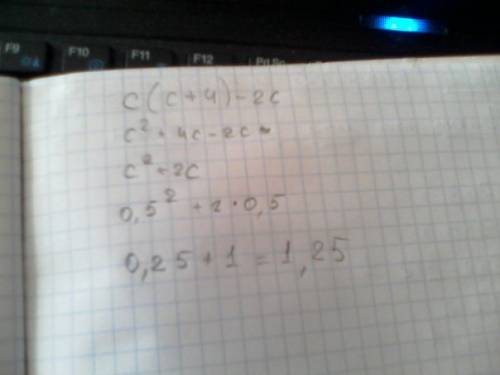 F9 F10 F11 F12
c(c+4)-2c
c²+4c-2c=
c²+2c
0,5²+2·0,5
0,25+1=1,25